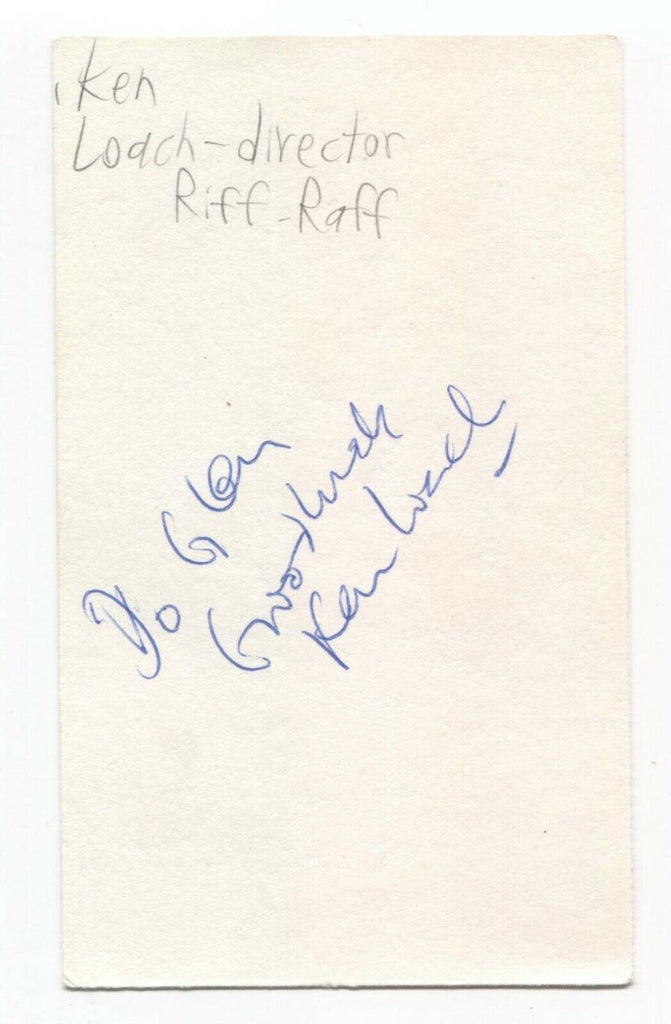 Ken
Loach - director
Riff-Raff
To Glen
Good luck
Ken Loach